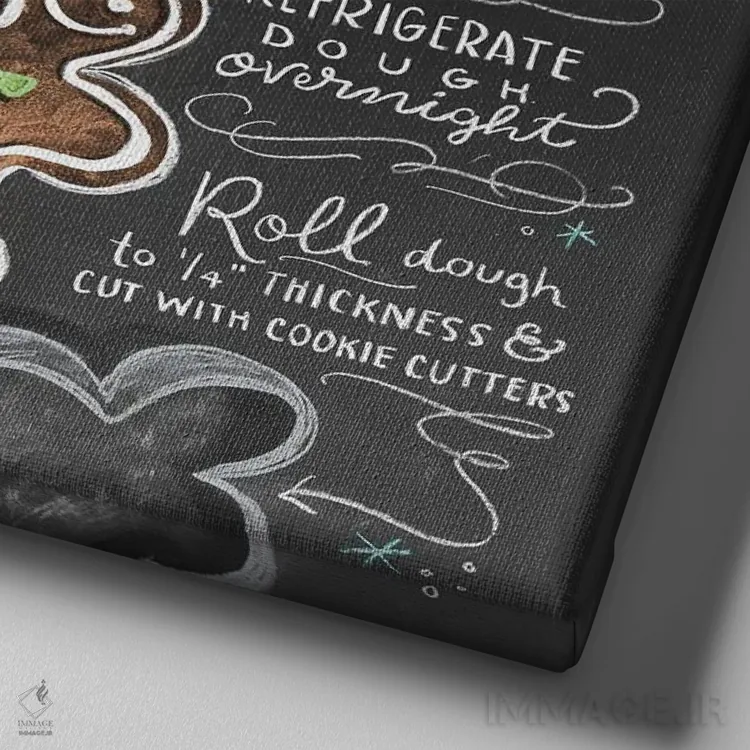 REFRIGERATE
DOUGH
overnight
Roll dough
to 1/4" THICKNESS &
CUT WITH COOKIE CUTTERS
IMMAGE
IMMAGE.IR
IMMAGE.IR